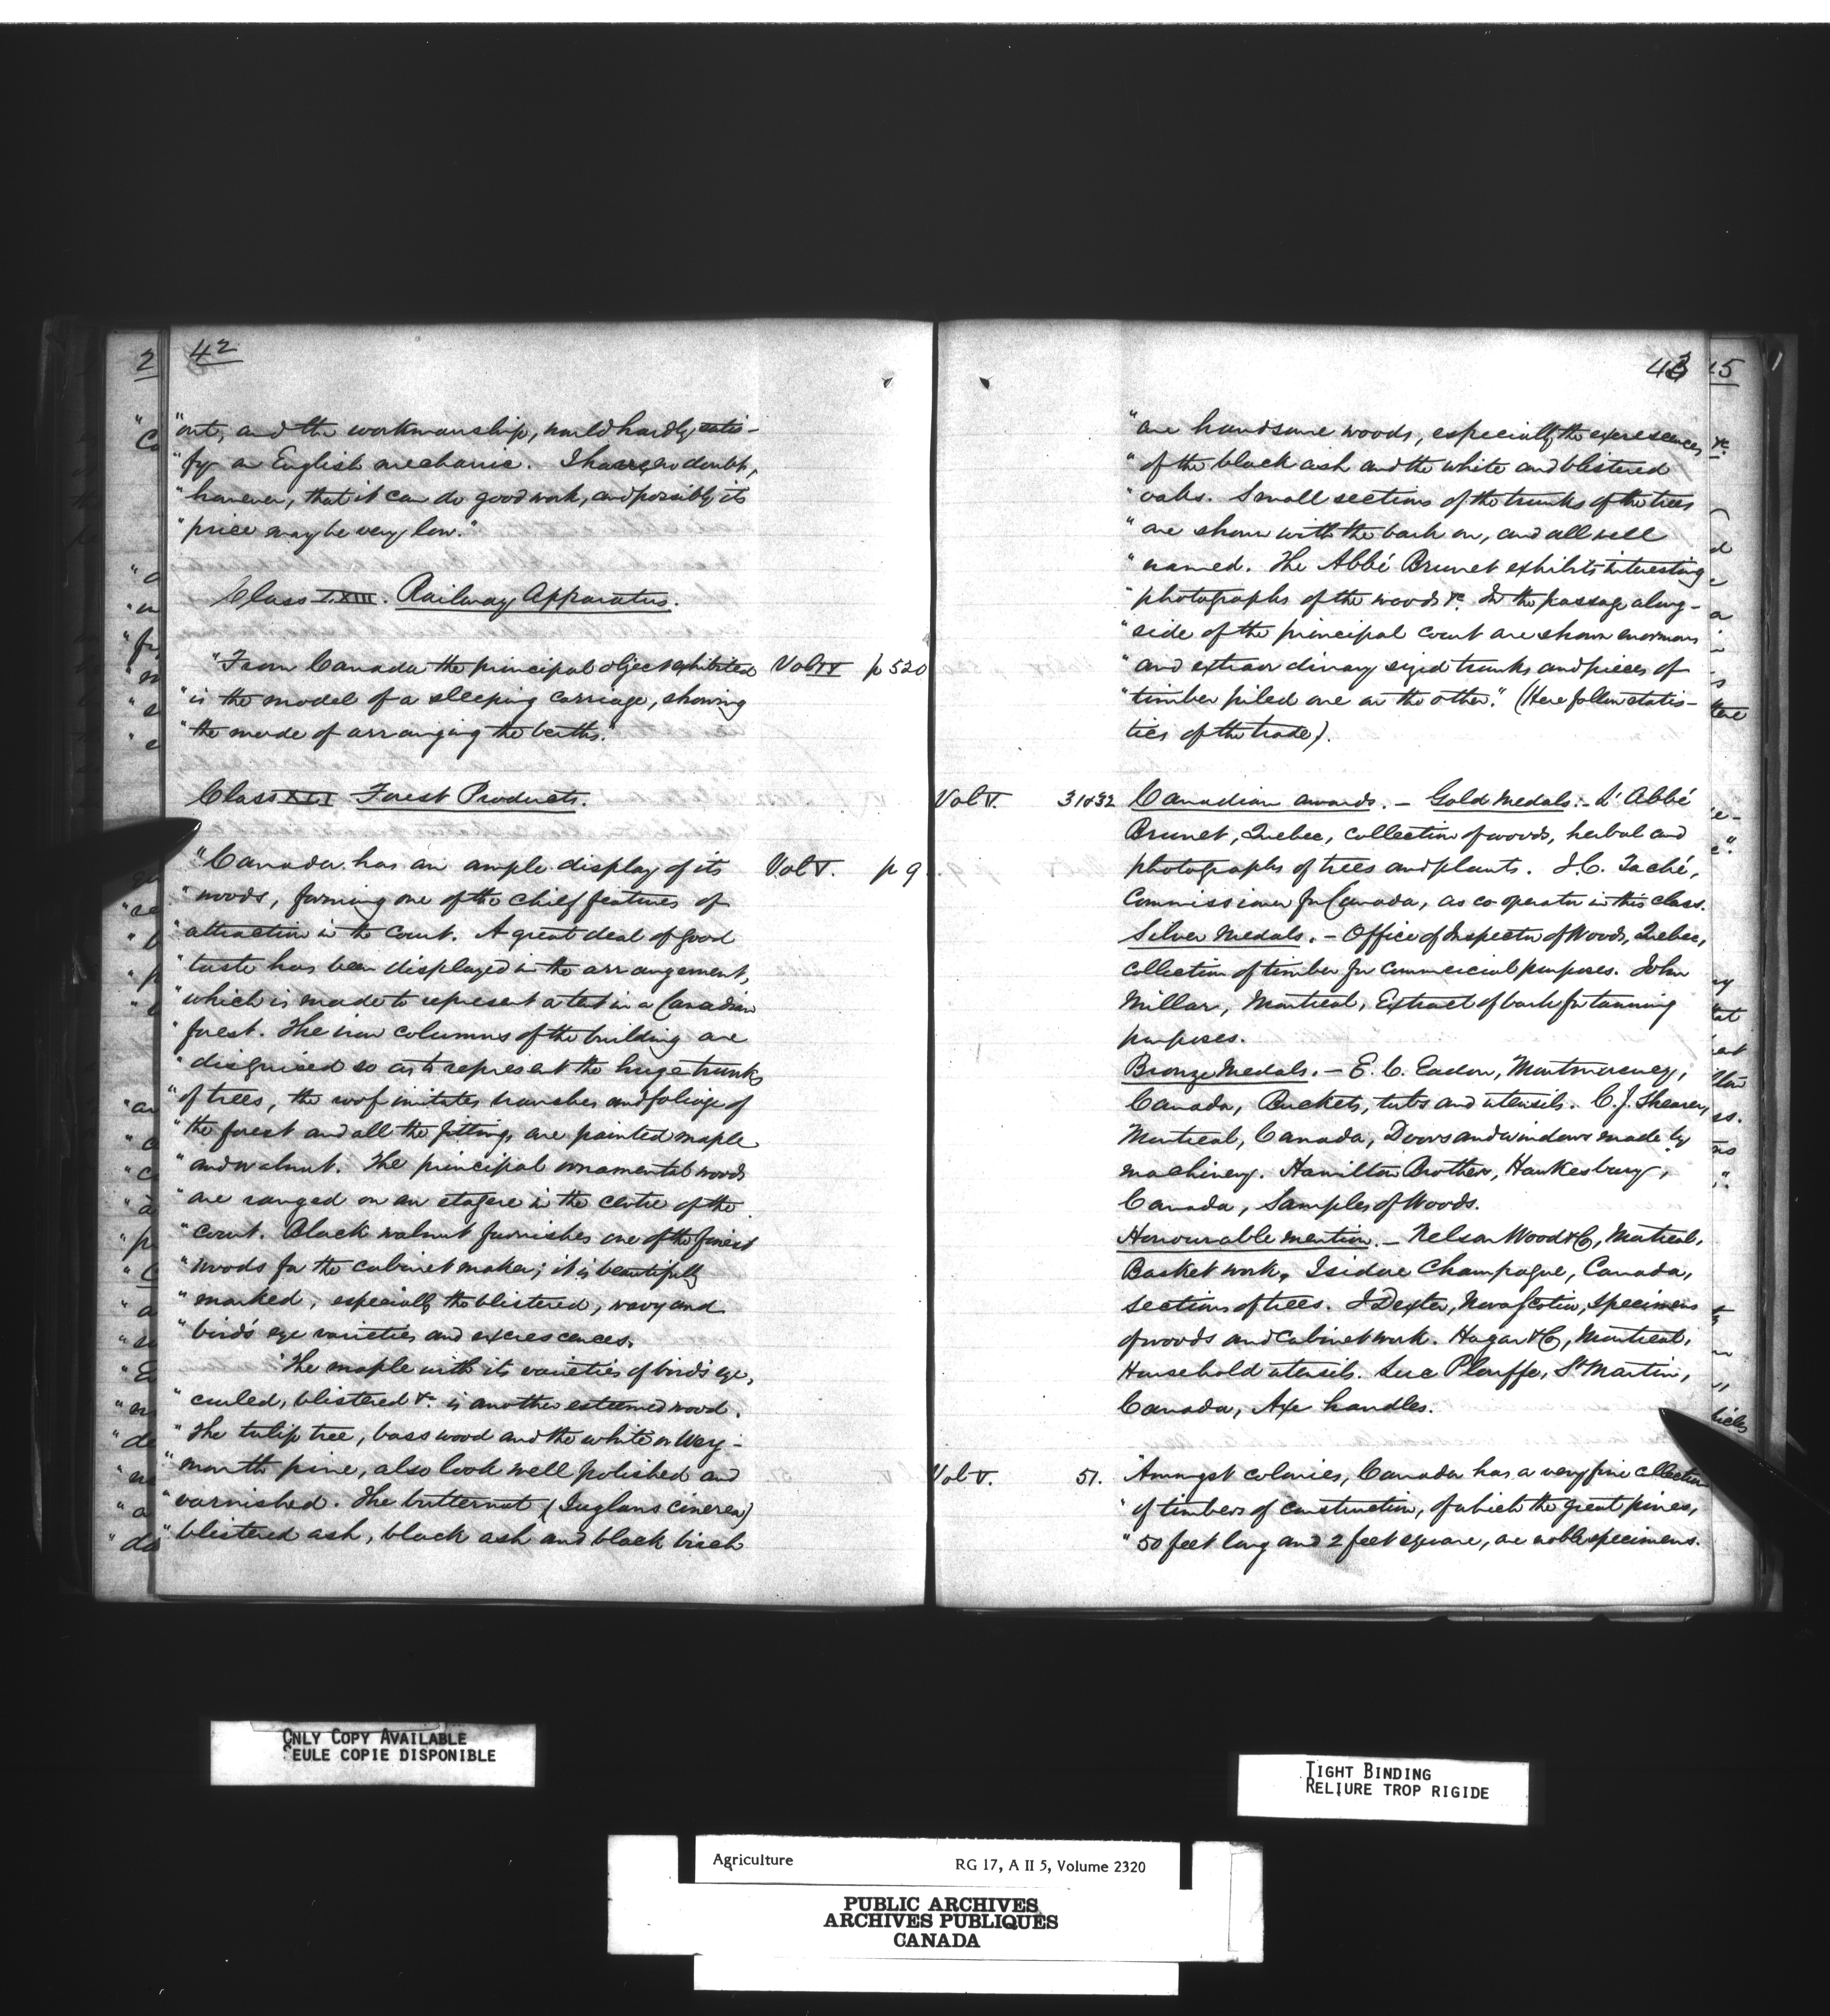 42
"out, and the workmanship, would hardly satis-
"fy an English mechanic. I have no doubt,
"however, that it can do good work, and possibly its
"price may be very low."
Class LXIII. Railway Apparatus.
"From Canada the principal object exhibited Vol IV p 520
"is the model of a sleeping carriage, showing
"the mode of arranging the berths."
Class XLI Forest Products.
"Canada has an ample display of its Vol V. p 9
"woods, forming one of the chief features of
"attraction in the Court. A great deal of good
"taste has been displayed in the arrangement,
"which is made to represent a tent in a Canadian
"forest. The iron columns of the building are
"disguised so as to represent the huge trunks
"of trees, the roof imitates branches and foliage of
"the forest and all the fittings are painted maple
"and walnut. The principal ornamental woods
"are ranged on an etagere in the centre of the
"court. Black walnut furnishes one of the finest
"woods for the cabinet maker; it is beautifully
"marked, especially the blistered, wavy and
"bird's eye varieties and excrescences.
"The maple with its varieties of bird's eye,
"curled, blistered &c. is another esteemed wood.
"The tulip tree, basswood and the white or Wey-
"mouth pine, also look well polished and
"varnished. The butternut (Juglans cinerea)
"blistered ash, black ash and black birch
43
"are handsome woods, especially the excrescences
"of the black ash and the white and blistered
"oaks. Small sections of the trunks of the trees
"are shown with the bark on, and all well
"named. The Abbé Brunet exhibits interesting
"photographs of the woods &c. In the passage along-
"side of the principal court are shown enormous
"and extraordinary sized trunks and pieces of
"timber piled one on the other." (Here follow statis-
tics of the trade).
Vol V. 31 & 32 Canadian awards. - Gold Medals. - L'Abbé
Brunet, Quebec, collection of woods, herbal and
photographs of trees and plants. J.C. Taché,
Commissioner for Canada, as co-operator in this class.
Silver Medals. - Office of Inspector of Woods, Quebec,
Collection of timber for commercial purposes. John
Millar, Montreal, Extract of bark for tanning
purposes.
Bronze Medals. - E. C. Eadon, Montmorency,
Canada, Buckets, tubs and utensils. C. J. Shearer,
Montreal, Canada, Doors and windows made by
machinery. Hamilton Brothers, Hawkesbury,
Canada, Samples of Woods.
Honourable mention. - Nelson Wood & Co, Montreal,
Basket work. Isidore Champagne, Canada,
Sections of trees. J Dexter, Nova Scotia, specimens
of woods and cabinet work. Hagar & Co, Montreal,
Household utensils. Luc Plouffe, St Martin,
Canada, Axe handles.
Vol V. 51. "Amongst colonies, Canada has a very fine collection
"of timbers of construction, of which the great pines,
"50 feet long and 2 feet square, are noble specimens.
ONLY COPY AVAILABLE
SEULE COPIE DISPONIBLE
TIGHT BINDING
RELIURE TROP RIGIDE
Agriculture RG 17, A II 5, Volume 2320
PUBLIC ARCHIVES
ARCHIVES PUBLIQUES
CANADA